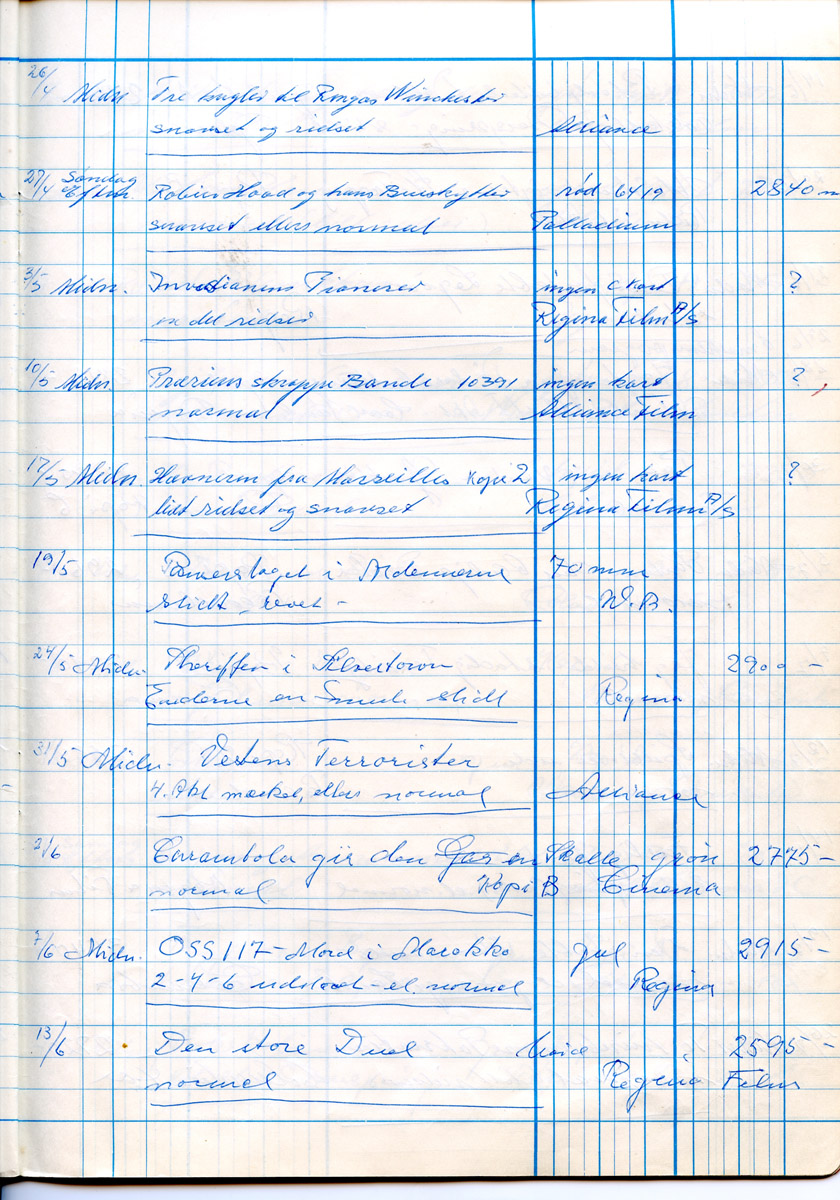 26/4 Midn. Tre kugler til Ringos Winchester
snavset og ridset Alliance
27/4 Søndag Eftm. Robin Hood og hans Bueskytter rød 6419 2840 m
snavset ellers normal Palladium
3/5 Midn. Invasionens Pionerer ingen C kort ?
en del ridser Regina Film A/S
10/5 Midn. Præriens skrappe Bande 10391 ingen kort ?
normal Alliance Film
17/5 Midn. Hævneren fra Marseilles Kopi 2 ingen kort ?
lidt ridset og snavset Regina Film A/S
19/5 Panserslaget i Ardennerne 70 mm
slidt - revet - W.B.
24/5 Midn. Sheriffen i Silvertown 2900 -
Enderne en Smule slidt Regina
31/5 Midn. Vestens Terrorister
4. Akt mærket, ellers normal Alliance
2/6 Carambola gir den Gas en Skalle grøn 2775 -
normal Kopi B Cinema
7/6 Midn. OSS 117 - Mord i Marokko gul 2915 -
2-4-6 - el. normal Regina
13/6 Den store Duel 2595 -
normal Regina Film